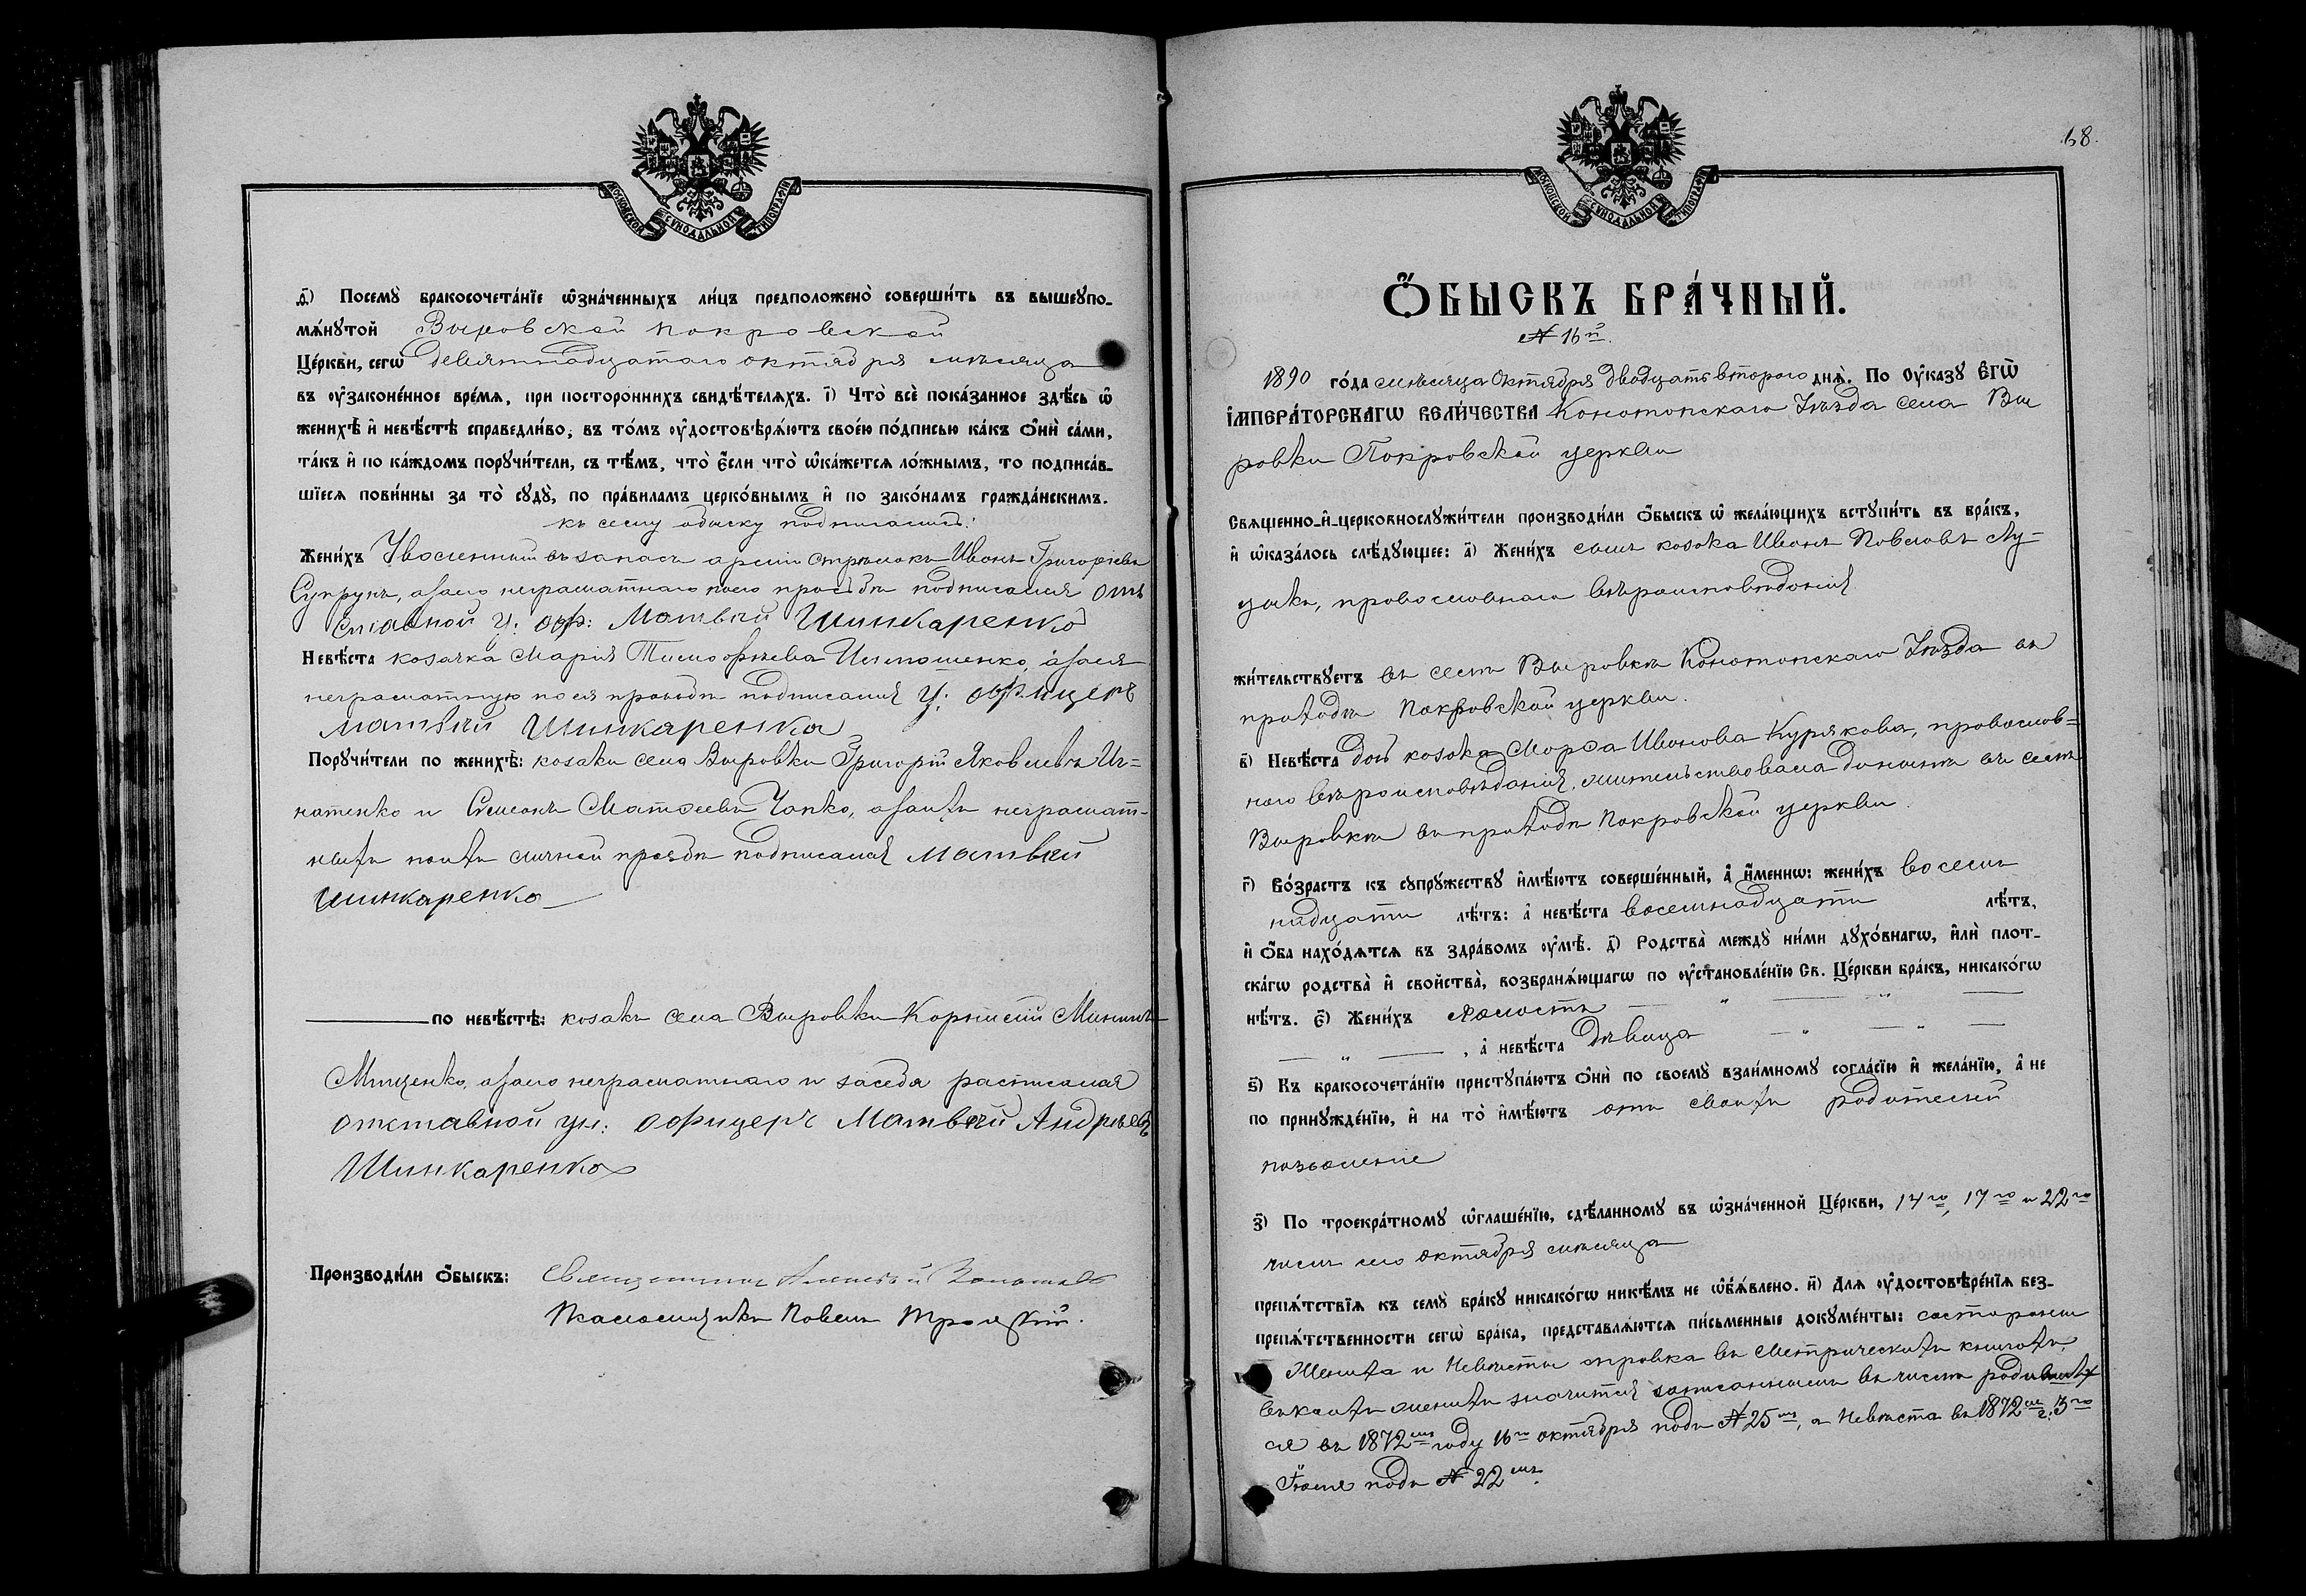 МОСКОВСКОЙ СѴНОДАЛЬНОЙ ТИПОГРАФІИ
ѳ҃) Посемꙋ̀ бракосочета́нїе ѡ҆зна́ченныхъ ли́цъ предположено̀ соверши́ть въ вышеꙋпо-
мѧ́нꙋтой Выровской покровской
Це́ркви, сегѡ̀ девятнадцатаго октября мѣсяца
въ ᲂу҆законе́нное вре́мѧ, при посторо́ннихъ свидѣ́телѧхъ. і҃) Что̀ всѐ пока́занное здѣ́сь ѡ҆
женихѣ̀ и҆ невѣ́стѣ справедли́во, въ то́мъ ᲂу҆достовѣрѧ́ютъ свое́ю по́дписью ка́къ ѻ҆нѝ са́ми,
та́къ и҆ по ка́ждомъ порꙋчи́тели, съ тѣ́мъ, что̀ є҆́сли что̀ ѡ҆ка́жетсѧ ло́жнымъ, то подписа́в-
шїесѧ пови́нны за то̀ сꙋдꙋ̀, по пра́виламъ церко́внымъ и҆ по зако́намъ гражда́нскимъ.
къ сему обыску подписались:
Жени́хъ Уволенный въ запасъ арміи стрѣлокъ Иванъ Григоріевъ
Супрунъ, а за его неграматнаго по его прозьбѣ подписался отъ
ставной У: офф: Матвѣй Шинкаренко
Невѣ́ста козачка Марія Тимофѣева а за нея
неграматную по ея прозьбѣ подписался У: оффицеръ
Матвѣй Шинкаренко
Порꙋчи́тели по женихѣ̀: козаки села Выровки Григорій Яковлевъ Иг-
натенко и Симеонъ Матѳеевъ Чапко, а за ихъ неграмат-
ныхъ по ихъ личной прозьбѣ подписался Матвѣй
Шинкаренко
по невѣ́стѣ: козакъ села Выровки Корнилій Мининъ
Мищенко, а за его неграматнаго и за себя расписался
отставной ун: оффицеръ Матвѣй Андрѣевъ
Шинкаренко
Производи́ли ѻ҆́быскъ: Священникъ Алексѣй
Псаломщикъ Павелъ Троицкій.
68.
МОСКОВСКОЙ СѴНОДАЛЬНОЙ ТИПОГРАФІИ
Ѻ҆́БЫСКЪ БРА́ЧНЫЙ.
№ 16й.
1890 го́да мѣсяца Октября двадцать второго днѧ̀. По ᲂу҆ка́зꙋ Є҆ГѠ̀
І҆МПЕРА́ТОРСКАГѠ ВЕЛИ́ЧЕСТВА Конотопскаго Уѣзда села Вы
ровки Покровской церкви
Свѧще́нно-и҆-церковнослꙋжи́тели производи́ли ѻ҆́быскъ ѡ҆ жела́ющихъ встꙋпи́ть въ бра́къ,
и҆ ѡ҆каза́лось слѣ́дꙋющее: а҃) Жени́хъ сынъ козака Иванъ Павловъ Лу-
цыкъ, православнаго вѣроисповѣданія
жи́тельствꙋетъ въ селѣ Выровкѣ Конотопскаго Уѣзда въ
приходѣ Покровской церкви.
в҃) Невѣ́ста дочь козака Марѳа Иванова Курякова, православ-
наго вѣроисповѣданія, жительствовала донынѣ въ селѣ
Выровкѣ въ приходѣ Покровской церкви.
г҃) Во́зрастъ къ сꙋпрꙋ́жествꙋ и҆мѣ́ютъ соверше́нный, а҆ и҆́меннѡ: жени́хъ восемь
надцати лѣ́тъ: а҆ невѣ́ста восемнадцати лѣ́тъ,
и҆ ѻ҆́ба нахо́дѧтсѧ въ здра́вомъ ᲂу҆мѣ̀. д҃) Родства̀ междꙋ̀ ни́ми дꙋхо́внагѡ, и҆лѝ плот-
ска́гѡ родства̀ и҆ сво́йства, возбранѧ́ющагѡ по ᲂу҆становле́нїю Св. Це́ркви бра́къ, никако́гѡ
нѣ́тъ. є҃) Жени́хъ холостъ — „ — „ —
— „ —, а҆ невѣ́ста дѣвица — „ — „ —
ѕ҃) Къ бракосочета́нїю пристꙋпа́ютъ ѻ҆нѝ по своемꙋ̀ взаи́мномꙋ согла́сїю и҆ жела́нїю, а҆ не
по принꙋжде́нїю, и҆ на то̀ и҆мѣ́ютъ отъ своихъ родителей
позволеніе
з҃) По троекра́тномꙋ ѡ҆глаше́нїю, сдѣ́ланномꙋ въ ѡ҆зна́ченной Це́ркви, 14го, 17го и 22го
чиселъ сего октября мѣсяца
препѧ́тствїѧ къ семꙋ̀ бра́кꙋ никако́гѡ никѣ́мъ не ѡ҆б̾ѧ́влено. и҃) Длѧ ᲂу҆достовѣре́нїѧ без-
препѧ́тственности сегѡ̀ бра́ка, представлѧ́ютсѧ пи́сьменные докꙋме́нты: состороны
Жениха и Невѣсты справка въ метрическихъ книгахъ,
въ коихъ женихъ значится записаннымъ въ числѣ родивших
ся въ 1872мъ году 16го октября подъ № 25мъ, а Невѣста въ 1872мъ г: 3го
Іюля подъ № 22мъ.